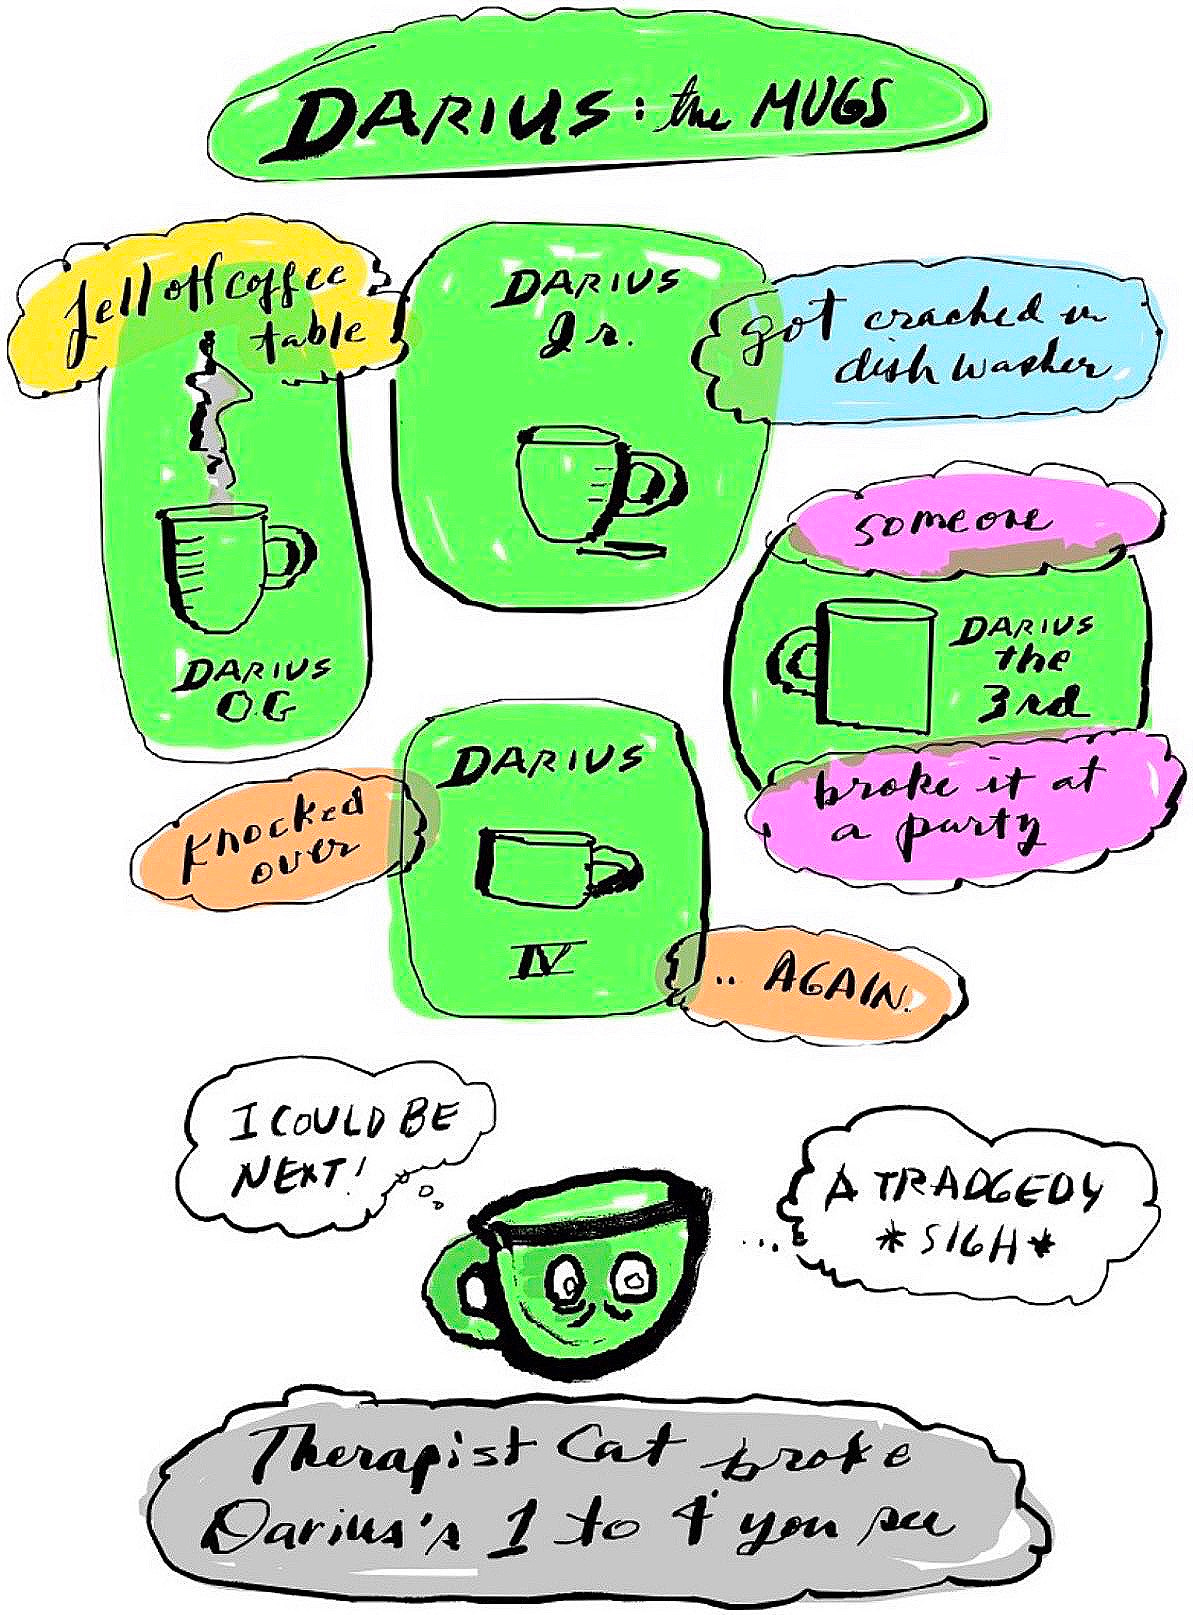 DARIUS: the MUGS
fell off coffee
table
DARIUS
O.G
DARIUS
Jr.
got cracked in
dish washer
someone
DARIUS
the
3rd
broke it at
a party
Knocked
over
DARIUS
IV
.. AGAIN.
I COULD BE
NEXT!
A TRADGEDY
*SIGH*
Therapist Cat broke
Darius's 1 to 4 you see